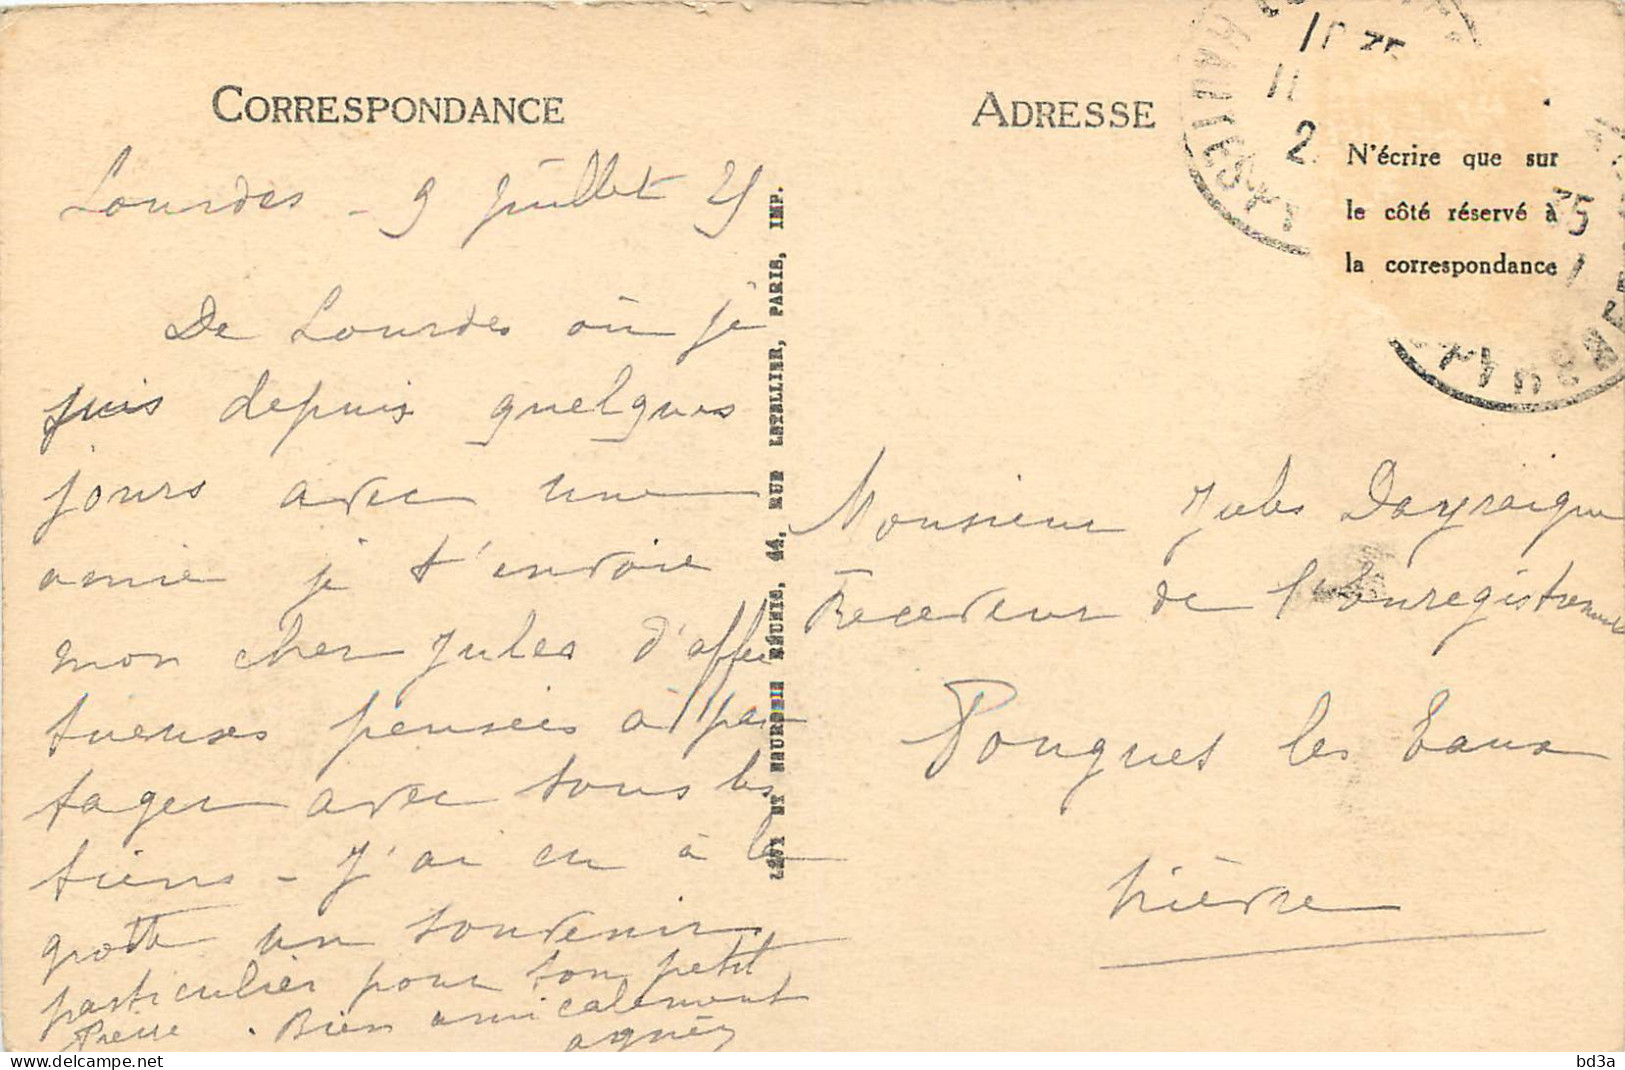 CORRESPONDANCE
Lourdes - 9 Juillet 25
De Lourdes où je
suis depuis quelques
jours avec une
amie je t'envoie
mon cher Jules d'affec
tueuses pensées à par
tager avec tous les
tiens - J'ai eu à la
grotte un souvenir
particulier pour ton petit
Pierre. Bien amicalement
agnès
LÉVY ET NEURDEIN RÉUNIS, 44, RUE LETELLIER, PARIS, IMP.
ADRESSE
N'écrire que sur
le côté réservé à
la correspondance
Monsieur Jules Dayraigne
Receveur de l'Enregistrement
Pougues les Eaux
Nièvre
bd3a